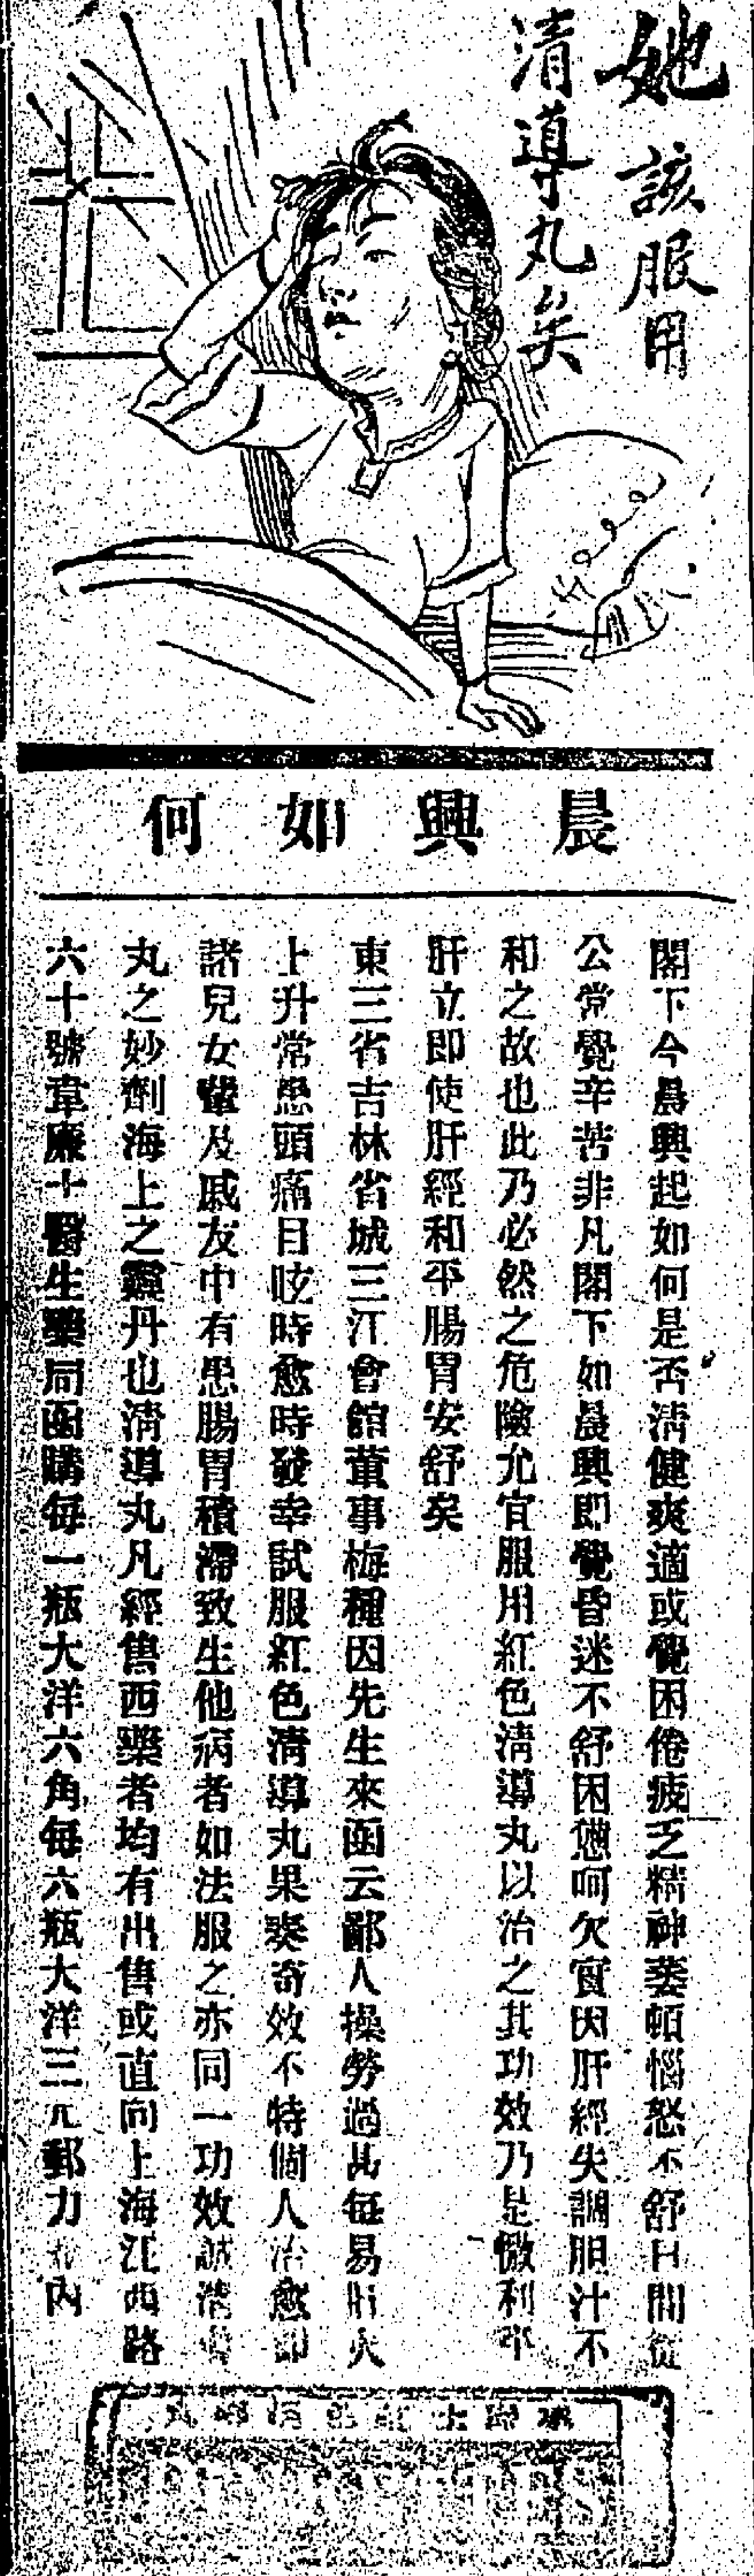 她該服用
清導丸矣
晨興如何
閣下今晨興起如何是否清健爽適或覺困倦疲乏精神萎頓惱怒不舒日間從
公常覺辛苦非凡閣下如晨興即覺昏迷不舒困憊呵欠實因肝經失調胆汁不
和之故也此乃必然之危險尤宜服用紅色清導丸以治之其功效乃是微利平
肝立即使肝經和平腸胃安舒矣
東三省吉林省城三江會館董事梅種因先生來函云鄙人操勞過甚每易肝火
上升常患頭痛目眩時愈時發幸試服紅色清導丸果奏奇效不特個人治愈即
諸兒女輩及戚友中有患腸胃積滯致生他病者如法服之亦同一功效誠清導
丸之妙劑海上之靈丹也清導丸凡經售西藥者均有出售或直向上海江西路
六十號韋廉士醫生藥局函購每一瓶大洋六角每六瓶大洋三元郵力在內